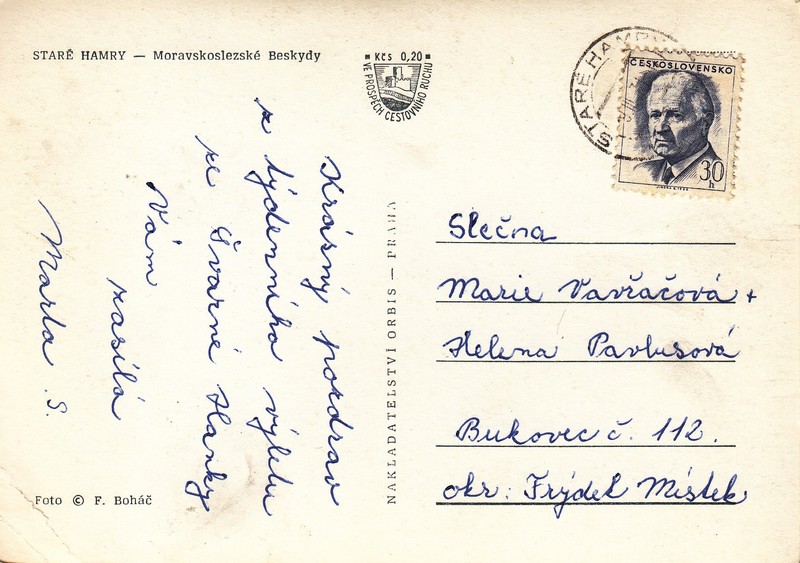 STARÉ HAMRY — Moravskoslezské Beskydy
Kčs 0,20
VE PROSPĚCH CESTOVNÍHO RUCHU
STARÉ HAMRY
ČESKOSLOVENSKO
30
h
Krásný pozdrav
z týdenního výletu
ze Švarné Hanky
Vám
zasílá
Marta S.
NAKLADATELSTVÍ ORBIS — PRAHA
Slečna
Marie Vavřačová +
Helena Pavlusová
Bukovec č. 112.
okr: Frýdek Místek
Foto © F. Boháč